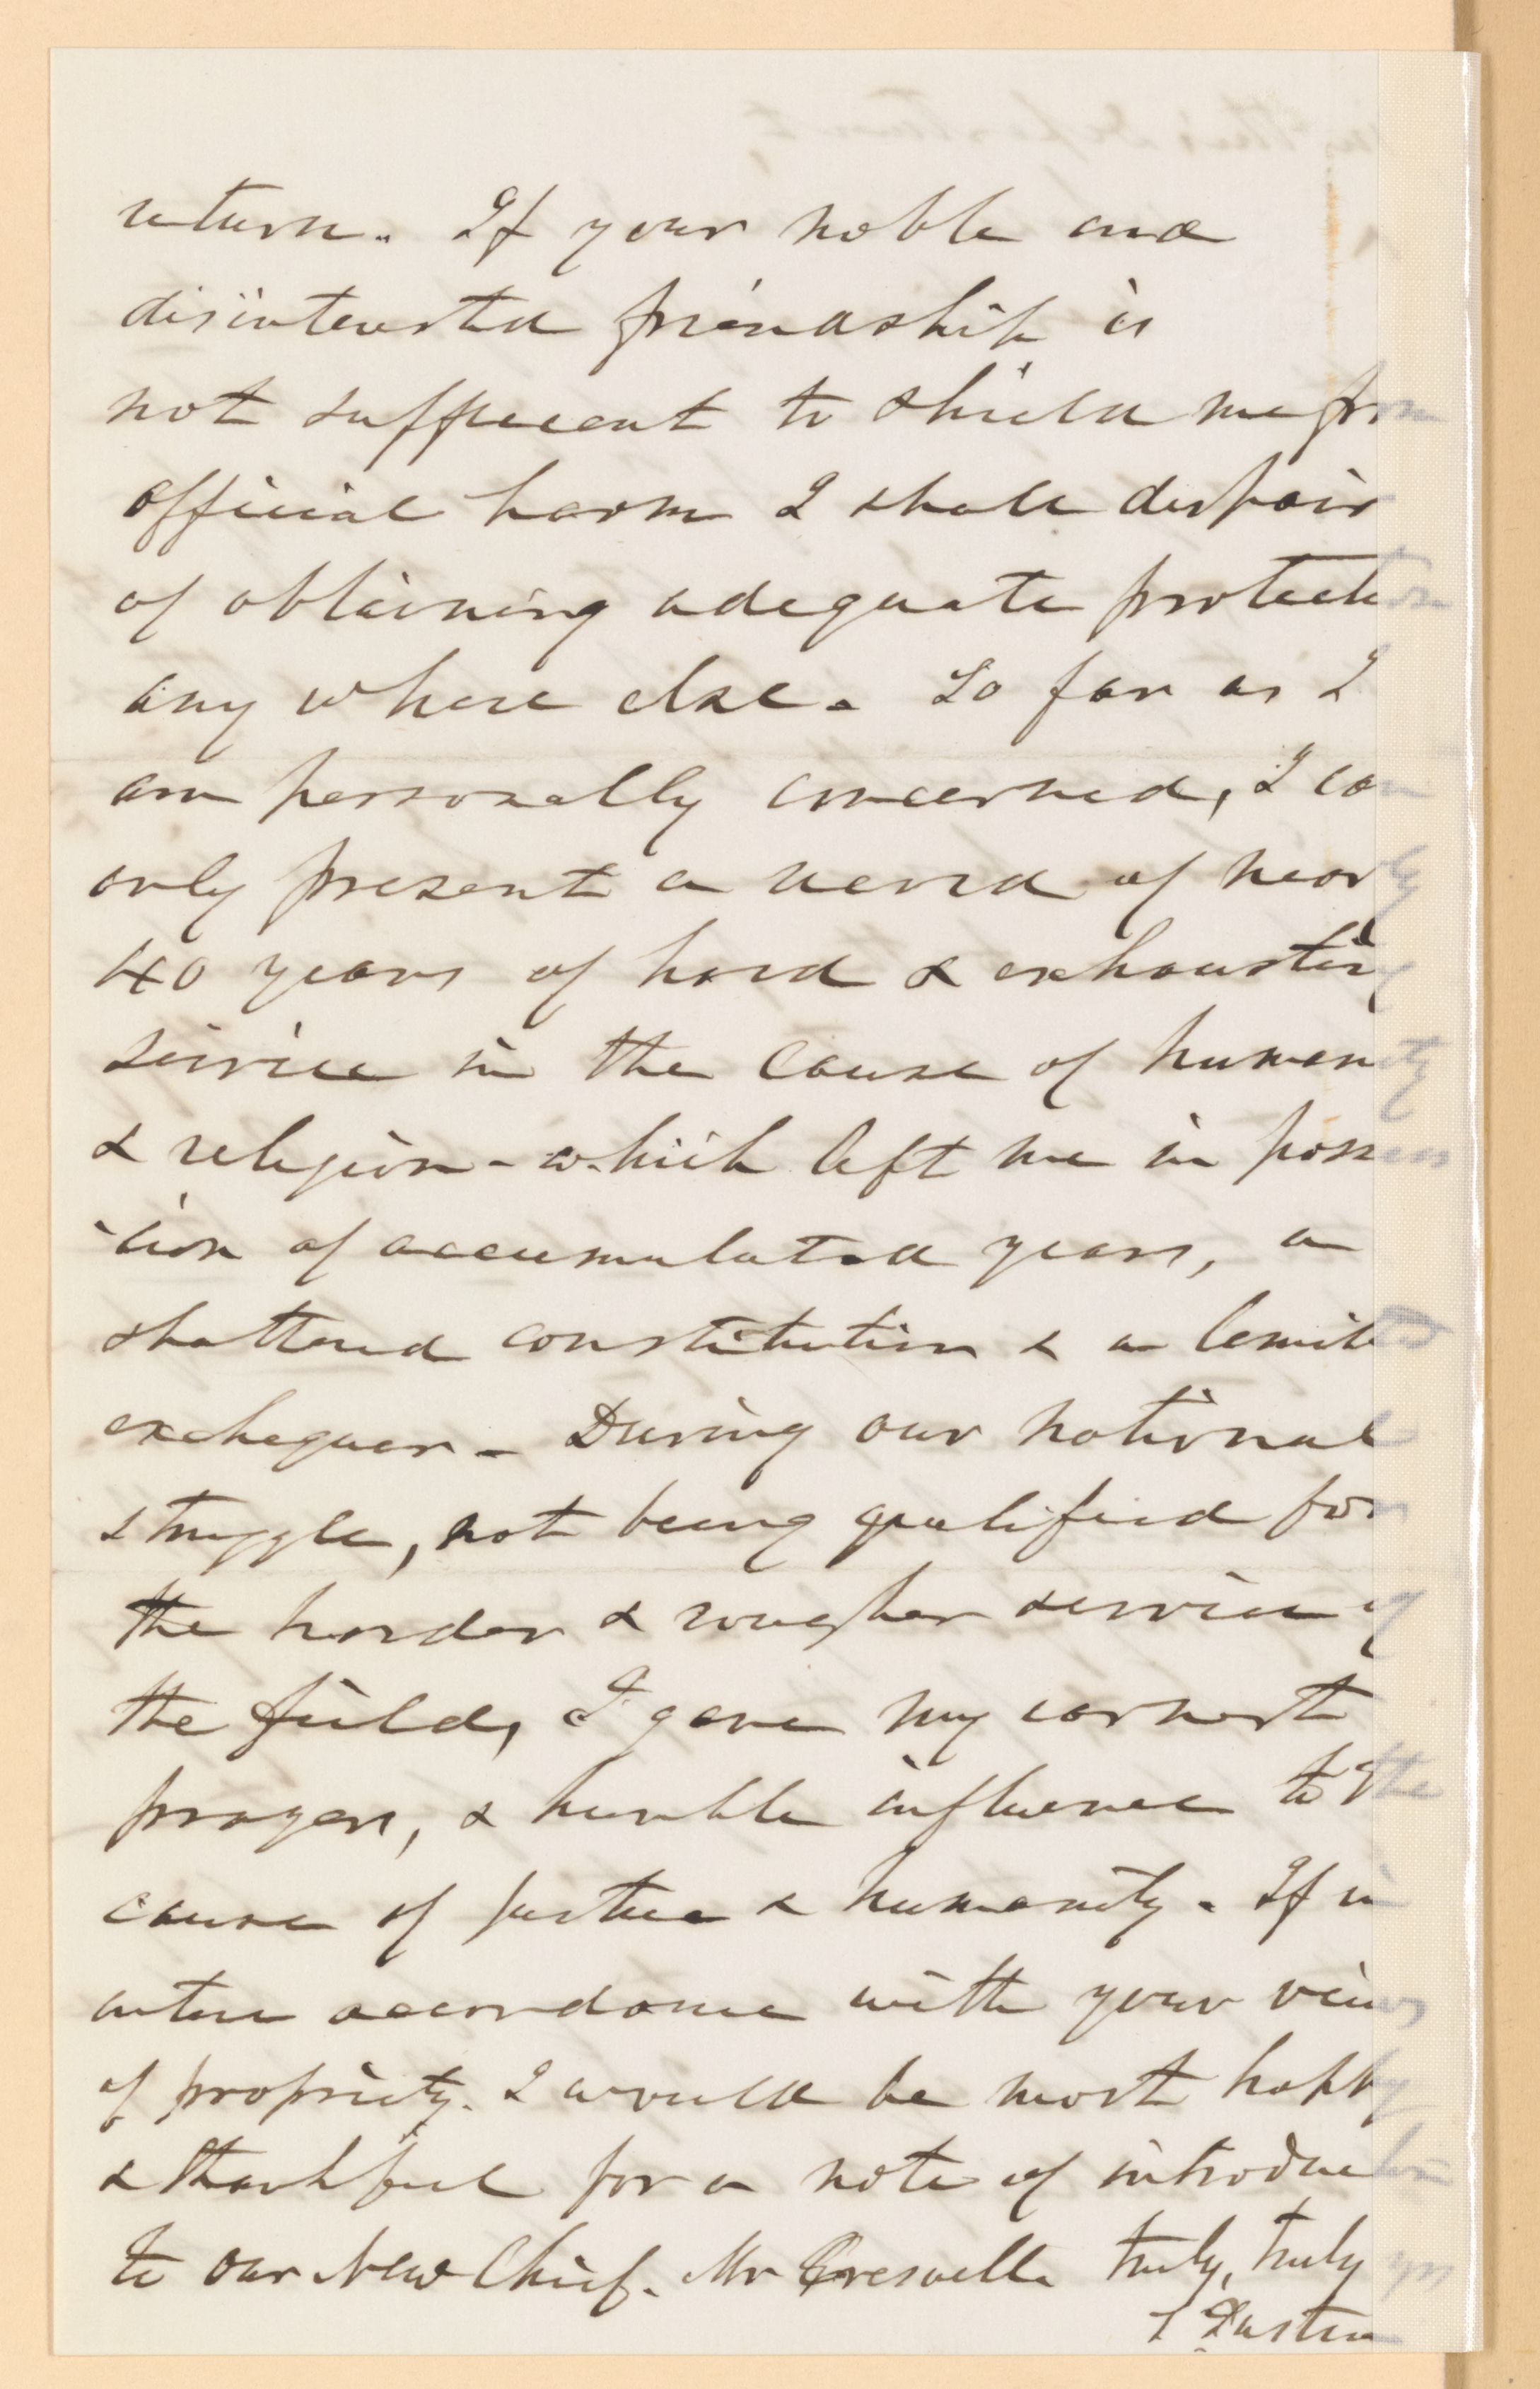 return. If your noble and
disinterested friendship is
not sufficeent to shield me from
official harm I shall despair
of obtaining adequate protection
any where else. So far as I
am personally concerned, I can
only present a record of nearly
40 years of hard & exhausting
service in the cause of humanity
& religion - which left me in possess
-tion of accumulated years, a
shattered constitution & a limited
exchequer - During our national
struggle, not being qualified for
the harder & rougher service of
the field, I gave my earnest
prayers, & humble influence to the
cause of justice & humanity. If in
entire accordance with your views
of propriety. I would be most happy
& thankful for a note of introduction
to our New Chief. Mr Creswell. truly, truly yrs